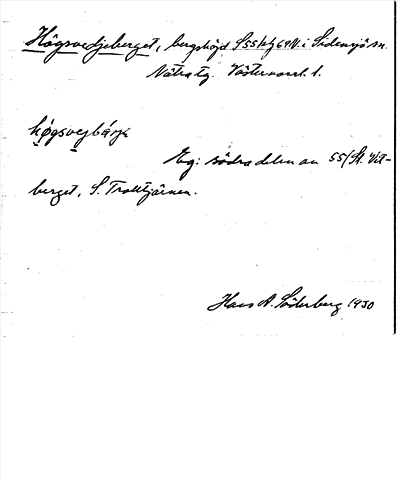 Högsvedjeberget, bergshöjd S55 69N. i Sidensjö sn.
Nätra tg. Västernorrl. l.
högsvejbärje
Eg: södra delen av 55/St. Vit-
berget, S. Trolltjärnen.
Hans A. Söderberg 1930